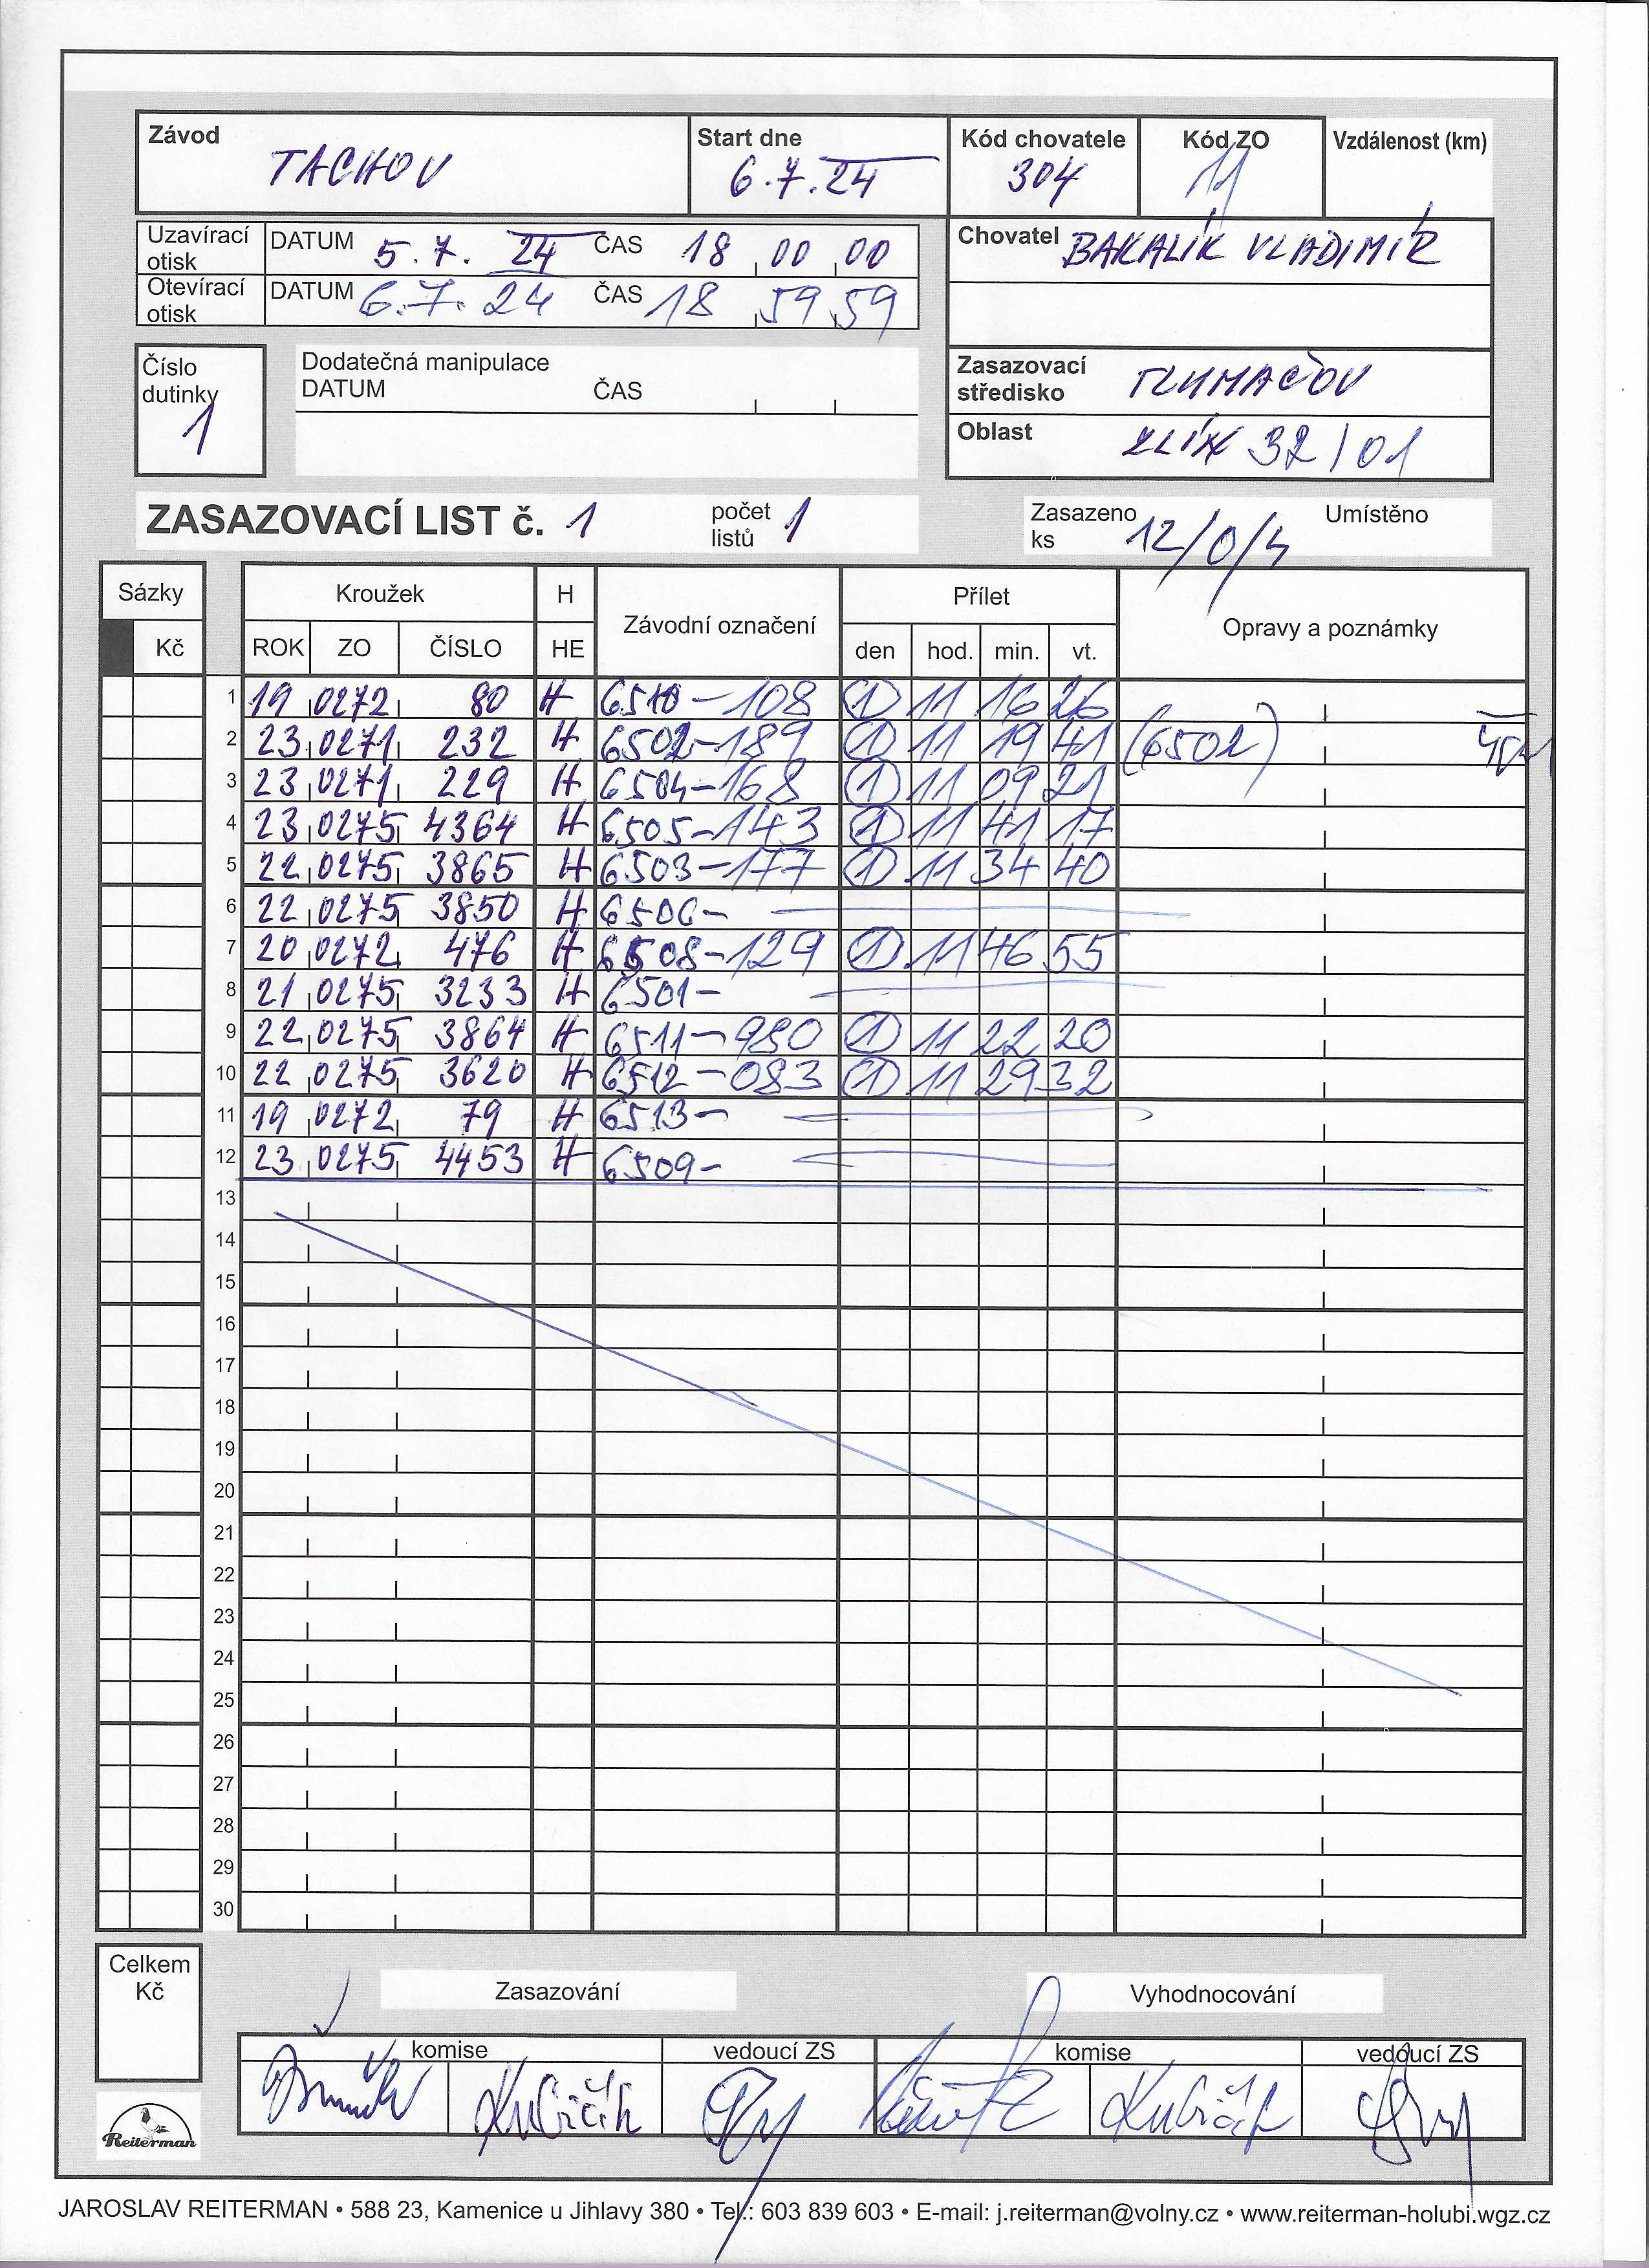 Závod Start dne Kód chovatele Kód ZO Vzdálenost (km)
TACHOV 6.7.24 304 11
Uzavírací otisk DATUM 5.7. 24 ČAS 18 00 00
Otevírací otisk DATUM 6.7.24 ČAS 18 59 59
Chovatel BAKALÍK VLADIMÍR
Číslo dutinky 1
Dodatečná manipulace
DATUM ČAS
Zasazovací středisko TLUMAČOV
Oblast ZLÍN 32/01
ZASAZOVACÍ LIST č. 1 počet listů 1 Zasazeno ks 12/0/4 Umístěno
Sázky Kroužek H Závodní označení Přílet Opravy a poznámky
Kč ROK ZO ČÍSLO HE den hod. min. vt.
1 19 0272 80 H 6510-108 1 11 16 26
2 23 0271 232 H 6502-189 1 11 19 41 (6502)
3 23 0271 229 H 6504-168 1 11 09 21
4 23 0275 4364 H 6505-143 1 11 41 17
5 22 0275 3865 H 6503-177 1 11 34 40
6 22 0275 3850 H 6506-
7 20 0272 476 H 6508-129 1 11 46 55
8 21 0275 3233 H 6501-
9 22 0275 3864 H 6511-980 1 11 22 20
10 22 0275 3620 H 6512-083 1 11 29 32
11 19 0272 79 H 6513-
12 23 0275 4453 H 6509-
13
14
15
16
17
18
19
20
21
22
23
24
25
26
27
28
29
30
Celkem Kč
Zasazování Vyhodnocování
komise vedoucí ZS komise vedoucí ZS
Kubičík Kubičík
Reiterman
JAROSLAV REITERMAN • 588 23, Kamenice u Jihlavy 380 • Tel.: 603 839 603 • E-mail: j.reiterman@volny.cz • www.reiterman-holubi.wgz.cz